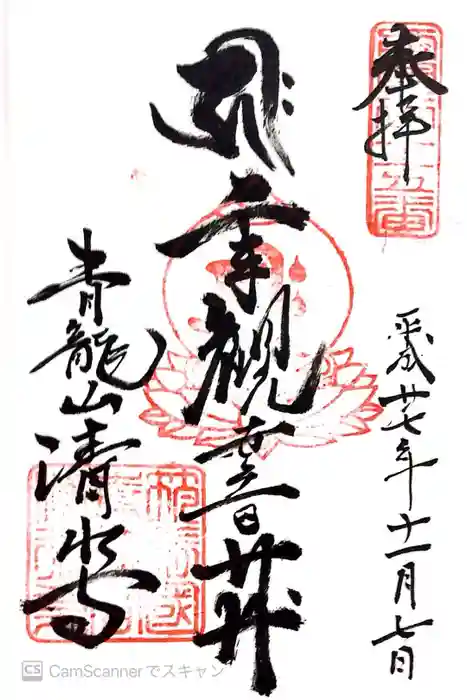 奉拝
平成廿七年十一月七日
千手觀音𦬇
青龍山清水寺
CS CamScannerでスキャン